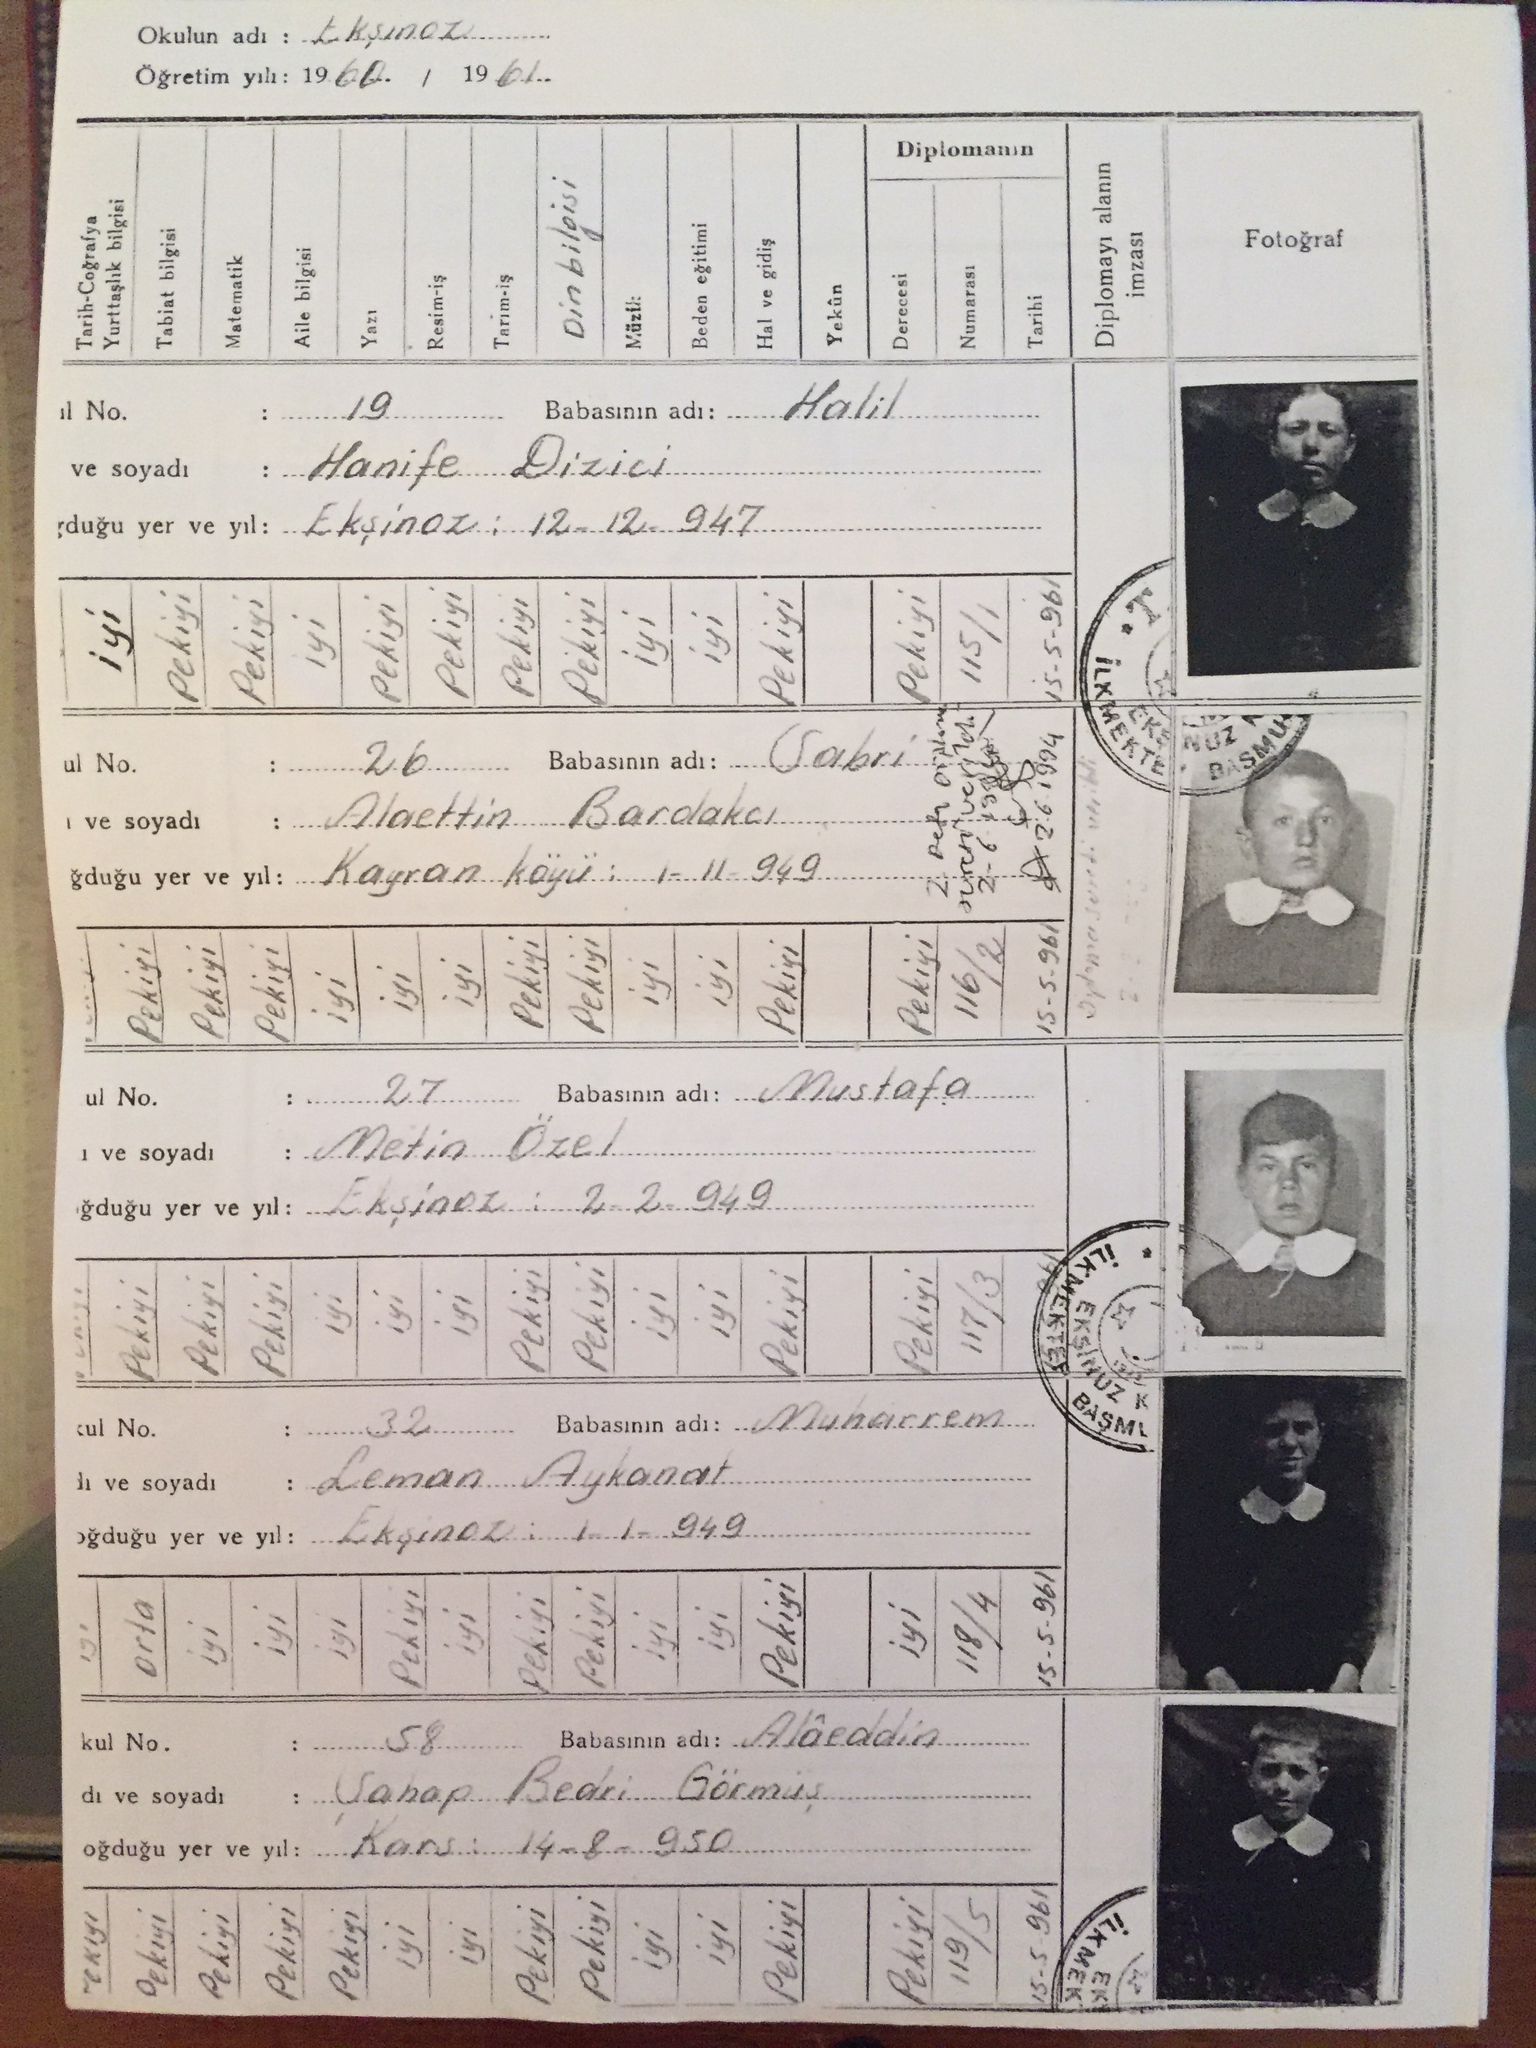 Okulun adı : Ekşinoz
Öğretim yılı: 1960 / 1961
Tarih-Coğrafya Yurttaşlık bilgisi
Tabiat bilgisi
Matematik
Aile bilgisi
Yazı
Resim-iş
Tarım-iş
Din bilgisi
Müzik
Beden eğitimi
Hal ve gidiş
Yekûn
Diplomanın
Derecesi
Numarası
Tarihi
Diplomayı alanın imzası
Fotoğraf
ul No. : 19 Babasının adı: Halil
ve soyadı : Hanife Dizici
ğduğu yer ve yıl: Ekşinoz : 12-12-947
iyi Pekiyi Pekiyi iyi Pekiyi Pekiyi Pekiyi Pekiyi iyi iyi Pekiyi Pekiyi 115/1 15-5-961
İLKMEKTE
BAŞMU
ul No. : 26 Babasının adı: Sabri
ı ve soyadı : Alaettin Bardakcı
ğduğu yer ve yıl: Kayran köyü : 1-11-949
2.6.1994
Pekiyi Pekiyi Pekiyi iyi iyi iyi Pekiyi Pekiyi iyi iyi Pekiyi Pekiyi 116/2 15-5-961
ul No. : 27 Babasının adı: Mustafa
ı ve soyadı : Metin Özel
ğduğu yer ve yıl: Ekşinoz : 2-2-949
Pekiyi Pekiyi Pekiyi iyi iyi iyi Pekiyi Pekiyi iyi iyi Pekiyi Pekiyi 117/3
İLKMEKTEP
EKŞİNUZ K
BAŞMU
kul No. : 32 Babasının adı: Muharrem
dı ve soyadı : Leman Aykanat
oğduğu yer ve yıl: Ekşinoz : 1-1-949
iyi Orta iyi iyi iyi Pekiyi iyi Pekiyi Pekiyi iyi iyi Pekiyi iyi 118/4 15-5-961
kul No. : 58 Babasının adı: Alâeddin
dı ve soyadı : Şahap Bedri Görmüş
oğduğu yer ve yıl: Kars : 14-8-950
Pekiyi Pekiyi Pekiyi Pekiyi Pekiyi iyi iyi Pekiyi Pekiyi iyi iyi Pekiyi Pekiyi 119/5 15-5-961
İLKMEK
EK